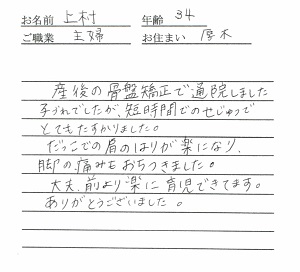 お名前 上村 年齢 34
ご職業 主婦 お住まい 厚木
産後の骨盤矯正で通院しました
子づれでしたが、短時間でのせじゅつで
とてもたすかりました。
だっこでの肩のはりが楽になり、
脚の痛みもおちつきました。
大夫、前より楽に育児できてます。
ありがとうございました。